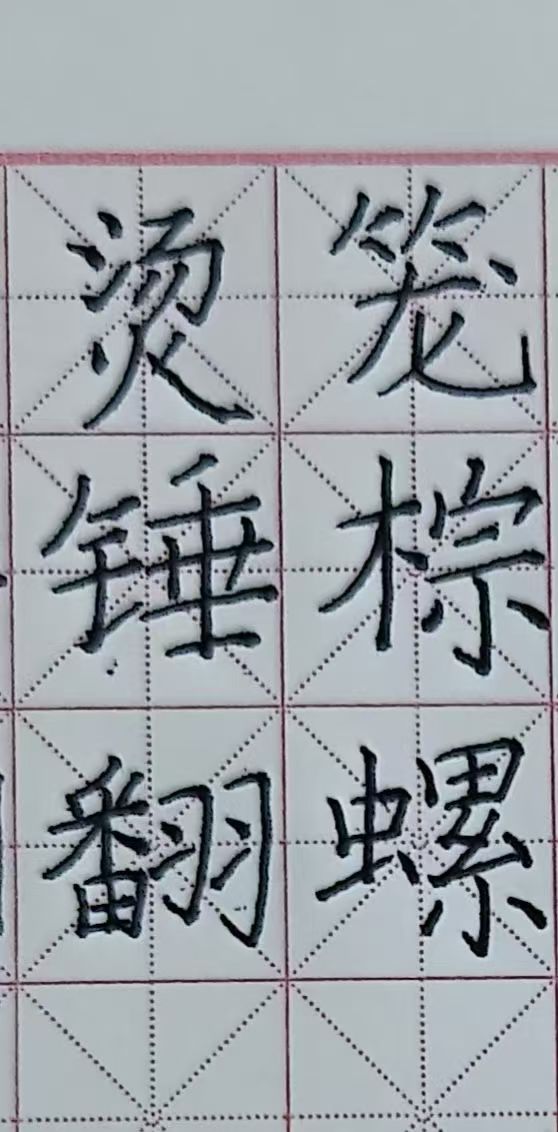 烫笼
锤棕
翻螺